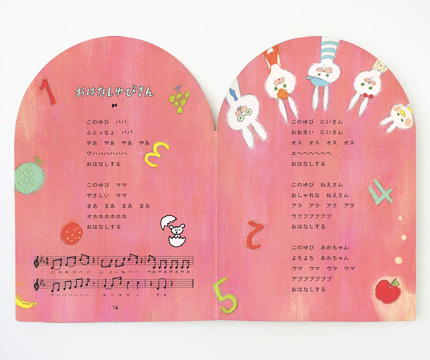 1
おはなしゆびさん
このゆび　パパ
ふとっちょ　パパ
やあ　やあ　やあ　やあ
ワハハハハハハ
おはなしする
3
このゆび　ママ
やさしい　ママ
まあ　まあ　まあ　まあ
オホホホホホホ
おはなしする
16
このゆび　にいさん
おおきい　にいさん
オス　オス　オス　オス
エヘヘヘヘヘヘ
おはなしする
このゆび　ねえさん
おしゃれな　ねえさん
アラ　アラ　アラ　アラ
ウフフフフフフ
おはなしする
4
2
このゆび　あかちゃん
よちよち　あかちゃん
ウマ　ウマ　ウマ　ウマ
アブブブブブブ
おはなしする
5